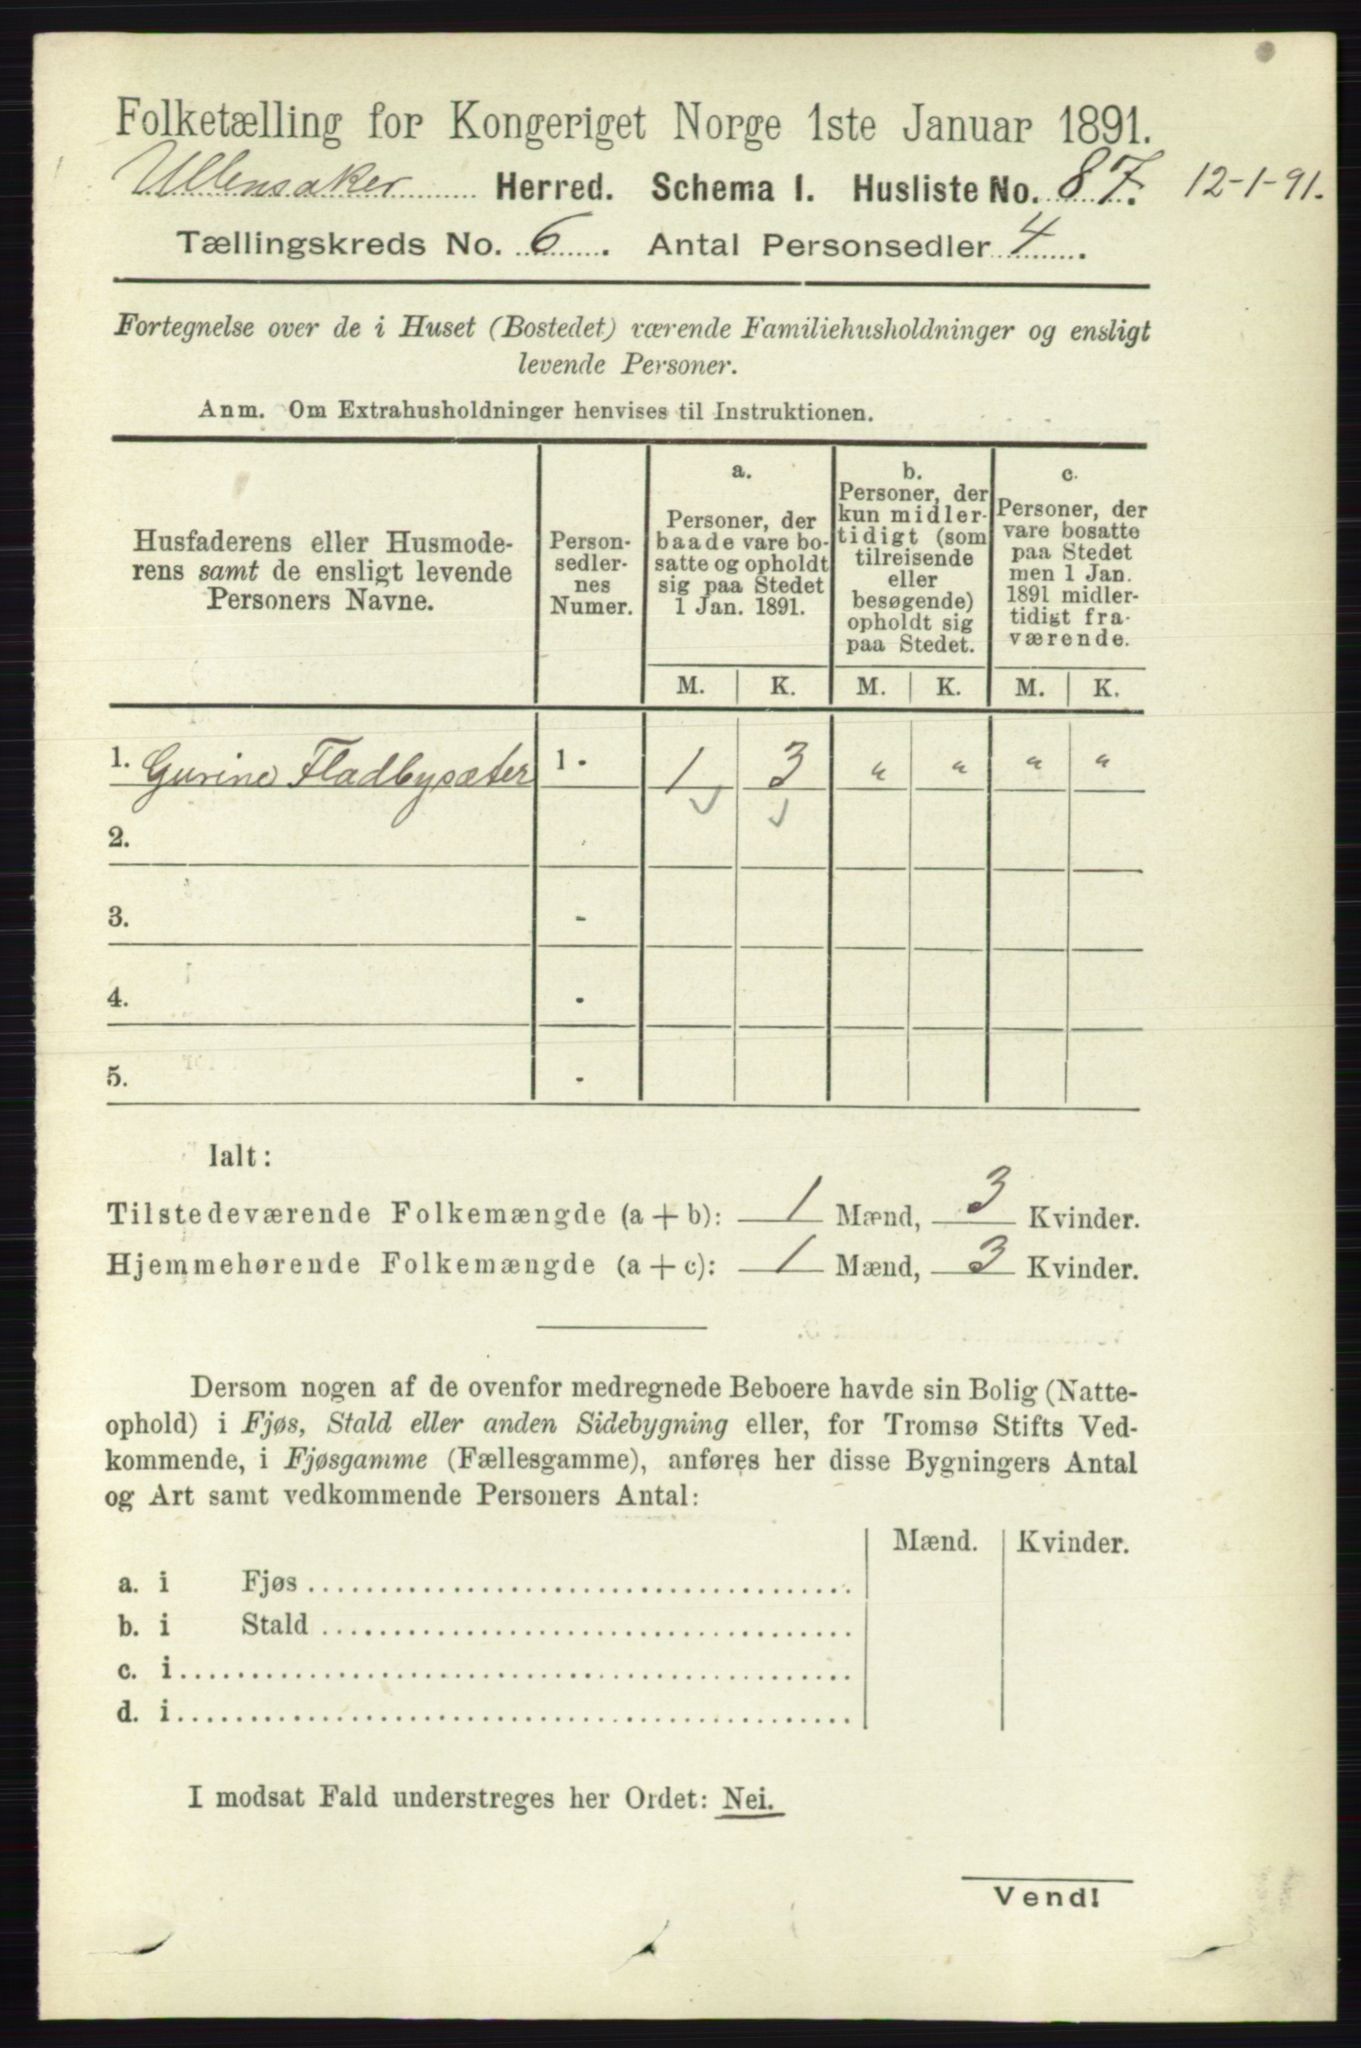 Folketælling for Kongeriget Norge 1ste Januar 1891.
Ullensaker Herred. Schema I. Husliste No. 87. 12-1-91.
Tællingskreds No. 6. Antal Personsedler 4.
Fortegnelse over de i Huset (Bostedet) værende Familiehusholdninger og ensligt
levende Personer.
Anm. Om Extrahusholdninger henvises til Instruktionen.
Husfaderens eller Husmode-
rens samt de ensligt levende
Personers Navne.
Person-
sedler-
nes
Numer.
a.
Personer, der
baade vare bo-
satte og opholdt
sig paa Stedet
1 Jan. 1891.
b.
Personer, der
kun midler-
tidigt (som
tilreisende
eller
besøgende)
opholdt sig
paa Stedet.
c.
Personer, der
vare bosatte
paa Stedet
men 1 Jan.
1891 midler-
tidigt fra-
værende.
M. K. M. K. M. K.
1. Gurine Fladbysæter 1 - 1 3 " " " "
2. -
3. -
4. -
5. -
Ialt:
Tilstedeværende Folkemængde (a + b): 1 Mænd, 3 Kvinder.
Hjemmehørende Folkemængde (a + c): 1 Mænd, 3 Kvinder.
Dersom nogen af de ovenfor medregnede Beboere havde sin Bolig (Natte-
ophold) i Fjøs, Stald eller anden Sidebygning eller, for Tromsø Stifts Ved-
kommende, i Fjøsgamme (Fællesgamme), anføres her disse Bygningers Antal
og Art samt vedkommende Personers Antal:
Mænd. Kvinder.
a. i Fjøs
b. i Stald
c. i
d. i
I modsat Fald understreges her Ordet: Nei.
Vend!